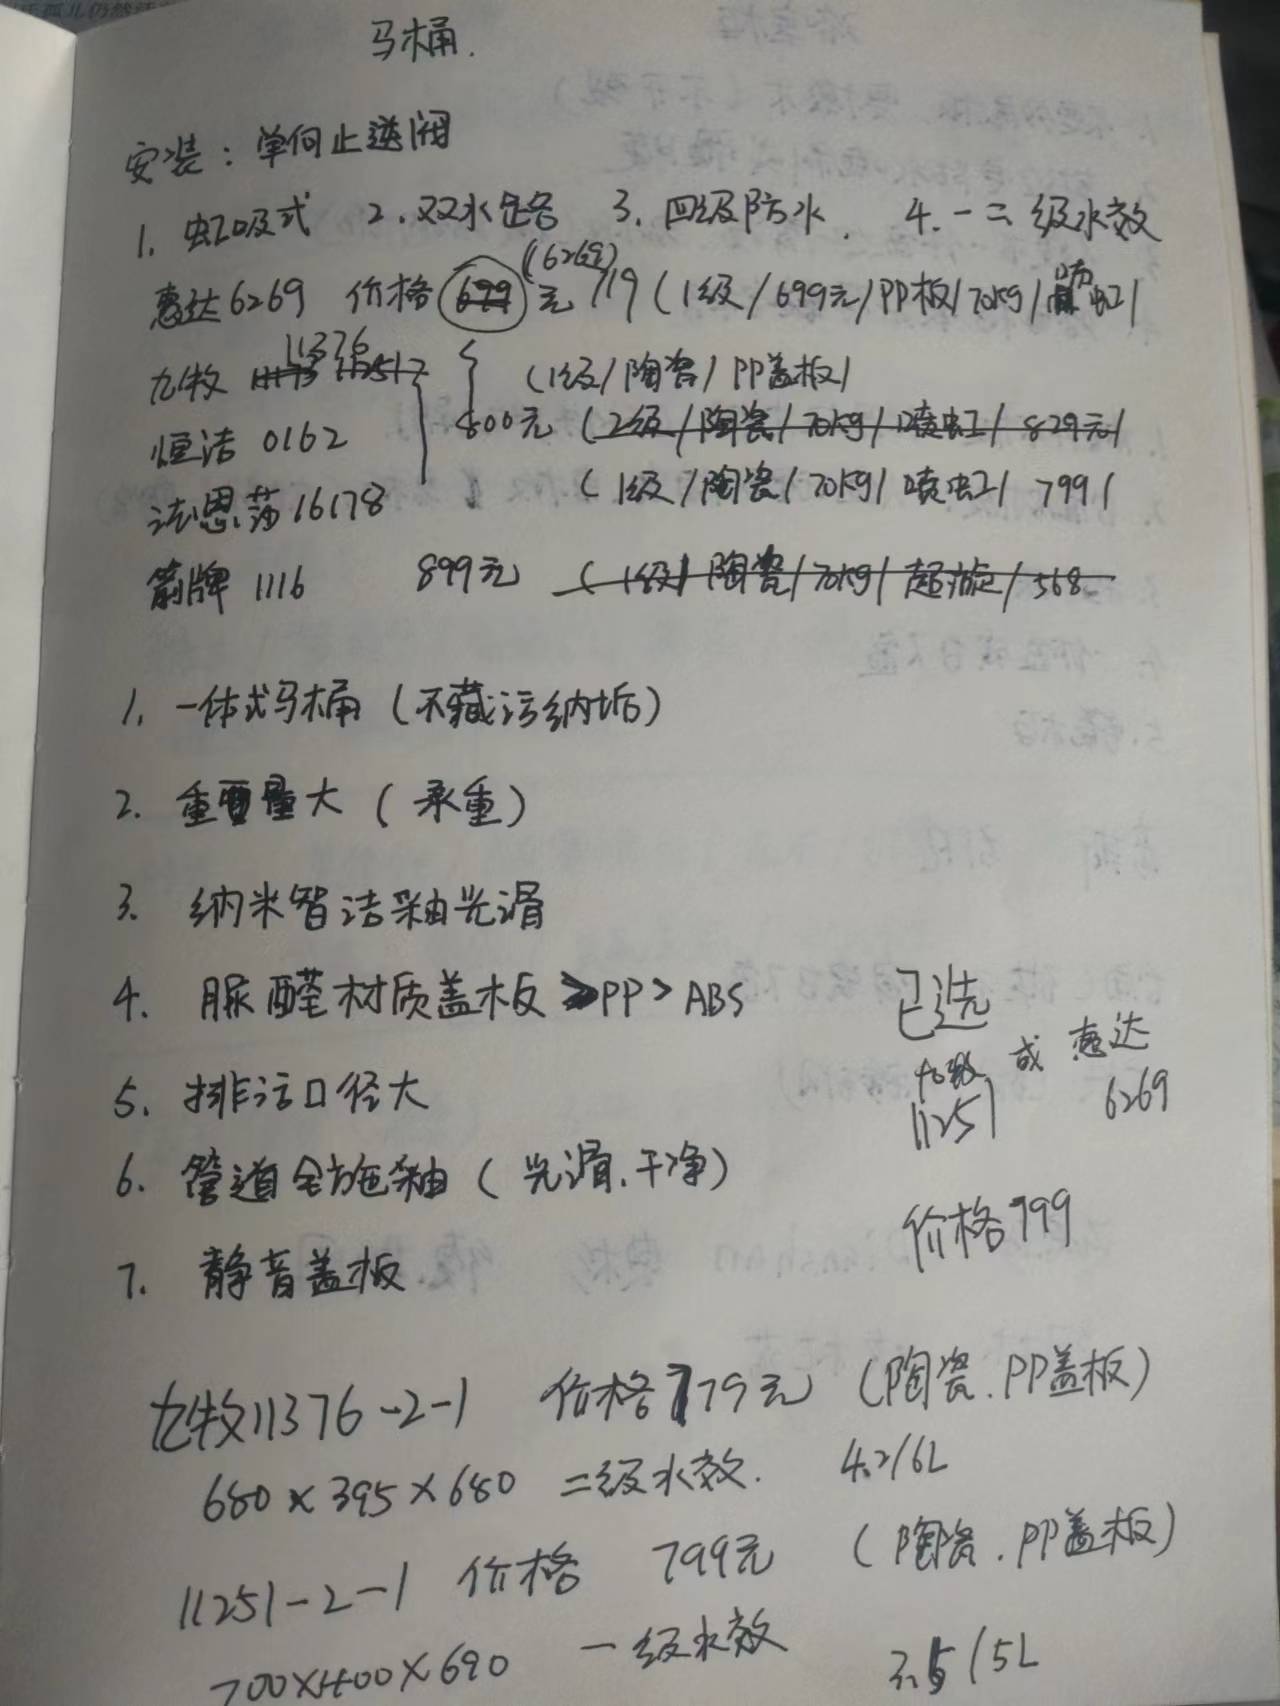 马桶.
安装：单向止逆阀
1. 虹吸式 2. 双水路 3. 四级防水. 4. 一二级水效
(626元)
惠达6269 价格 699 元 719 (1级/699元/PP板/70kg/喷虹/
11376
九牧 11251 (1级/陶瓷/PP盖板/
恒洁 0162 800元 (2级/陶瓷/70kg/喷虹/829元/
法恩莎16178 (1级/陶瓷/70kg/喷虹/799/
箭牌 1116 899元 (1级/陶瓷/70kg/超漩/568
1. 一体式马桶 (不藏污纳垢)
2. 重量大 (承重)
3. 纳米智洁釉光滑
4. 脲醛材质盖板 >PP>ABS
5. 排污口径大
6. 管道全施釉 (光滑.干净)
7. 静音盖板
已选
九牧 或 惠达
11251 6269
价格799
九牧11376-2-1 价格779元 (陶瓷.PP盖板)
680×395×680 二级水效. 4.2/6L
11251-2-1 价格 799元 (陶瓷.PP盖板)
700×400×690 一级水效 3.5/5L